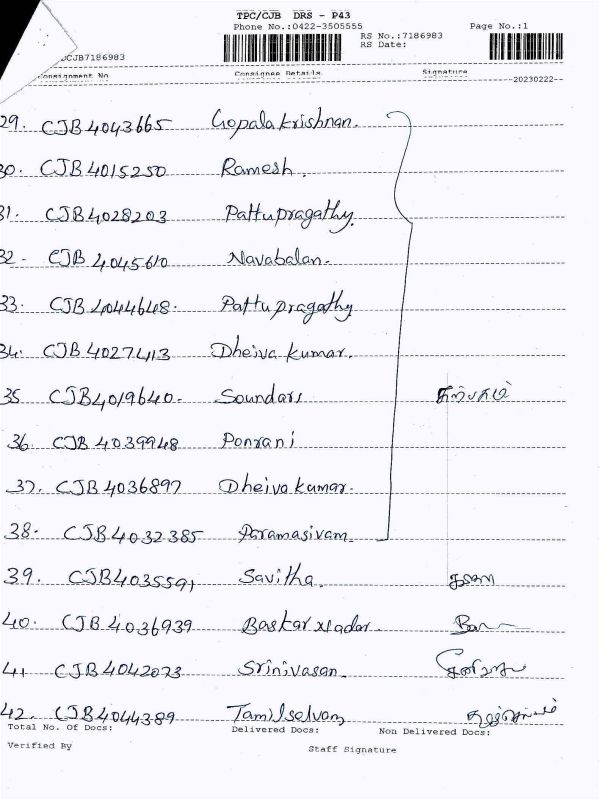 TPC/CJB DRS - P43
Phone No.:0422-3505555
Page No.:1
RS No.:7186983
RS Date:
DCJB7186983
Consignment No Consignee Details Signature
20230222
29. CJB4043665 Gopala krishnan.
30. CJB4015250 Ramesh.
31. CJB4028203 Pattupragathy.
32. CJB4045610 Navabalan.
33. CJB4044648. Pattupragathy
34. CJB4027413 Dheiva kumar.
35 CJB4019640. Soundari கற்பகம்
36. CJB4039948 Ponrani
37. CJB4036897 Dheiva kumar.
38. CJB4032385 Paramasivam.
39. CJB4035591 Savitha.
40. CJB4036939 Baskar Nadar.
41 CJB4042073 Srinivasan.
42. CJB4044389 Tamilselvam
Total No. Of Docs: Delivered Docs: Non Delivered Docs:
Verified By Staff Signature